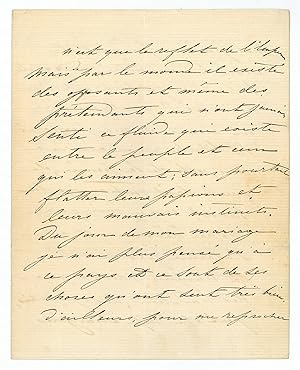 n'est que le reflet de l'
mais par le monde il existe
des opposants et même des
prétendants qui n'ont jamais
senti ce fluide qui existe
entre le peuple et ceux
qui les aiment, sans pourtant
flatter leurs passions et
leurs mauvais instincts.
Du jour de mon mariage
je n'ai plus pensé qu'à
ce pays et ce sont de ces
choses qu'on sent très bien
d'ailleurs, pour me reprocher